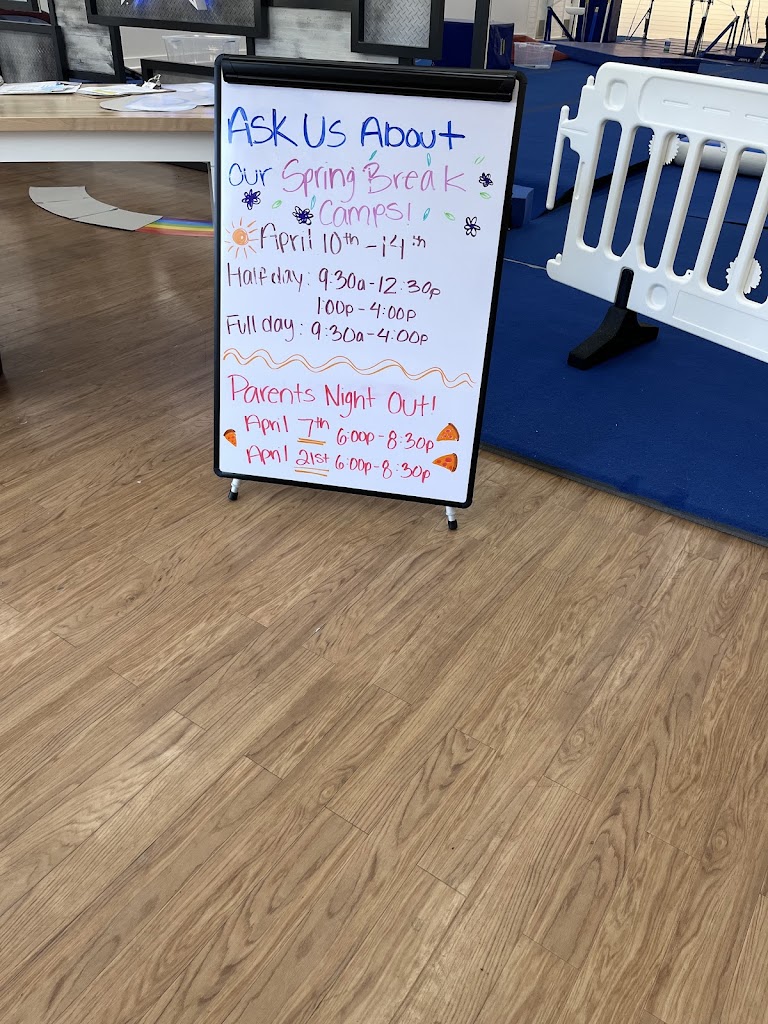 Ask Us About
Our Spring Break
Camps!
April 10th - 14th
Half day: 9:30a-12:30p
1:00p - 4:00p
Full day: 9:30a-4:00p
Parents Night Out!
April 7th 6:00p-8:30p
April 21st 6:00p-8:30p